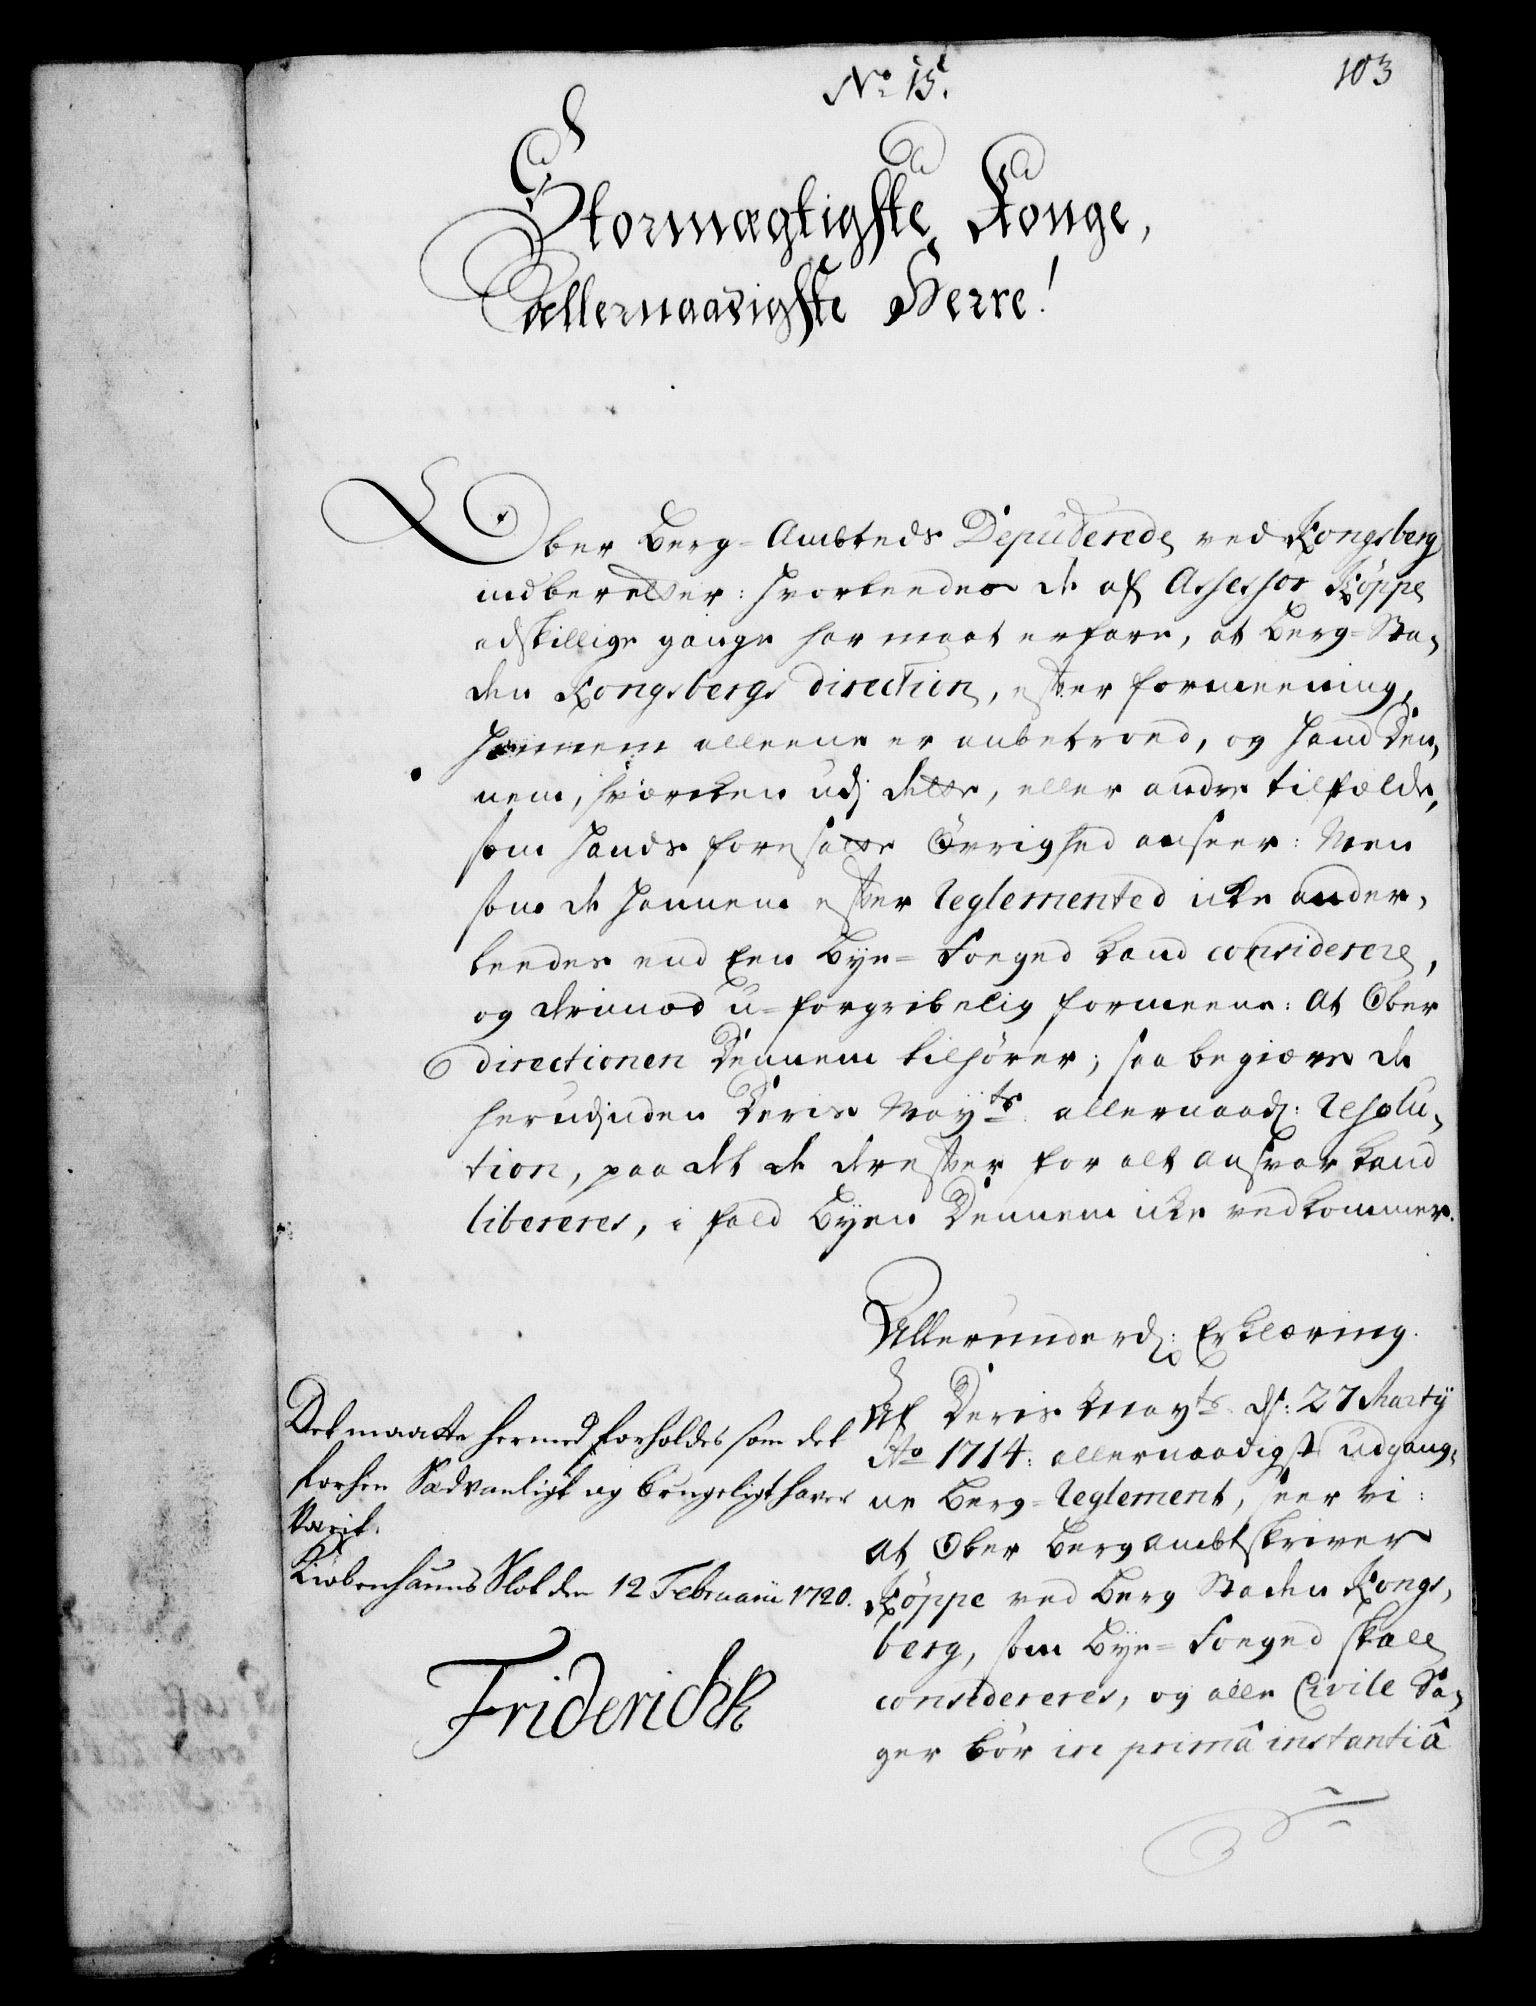 No 15.
103
Stormægtigste Konge,
allernaadigste Herre!
Ober Berg-Ambteds Depuderede ved Kongsberg
indberetter: hvorleedes de af Assessor Köppe
adskillige gange har maat erfare, at Berg-Sta,
den Kongsbergs direction, efter formeening,
hannem alleene er anbetroed, og hand den,
nem, hværcken udj dette, eller andre tilfælde,
som hands foresatte Övrighed anseer: Men
som de hannem efter Reglemented icke ander,
leedes end Een Bye-Foeged kand considerere,
og derimod u-forgribelig formeene: at Ober
directionen dennem tilhörer; saa begiære de
herudjnden deris Mayts allernaad: Resolu,
tion, paa det de derefter for alt ansvar kand
libereres, i fald Byen dennem icke vedkommer.
Allerunderd: Erklæring.
Af Deris Mayts d: 27 Martij
Ao 1714: allernaadigst udgang,
ne Berg-Reglement, seer vi:
at Ober Berg ambtskriver
Köppe ved Berg Staden Kongs,
berg, som Bye-Foeged skall
considereres, og alle Civile Sa,
ger bör in primâ instantiâ
Det maatte hermed forholdes som det
forhen Sædvanligt og brugeligt haver
Værit.
Kiøbenhauns Slot den 12 Februarii 1720.
Friderich R